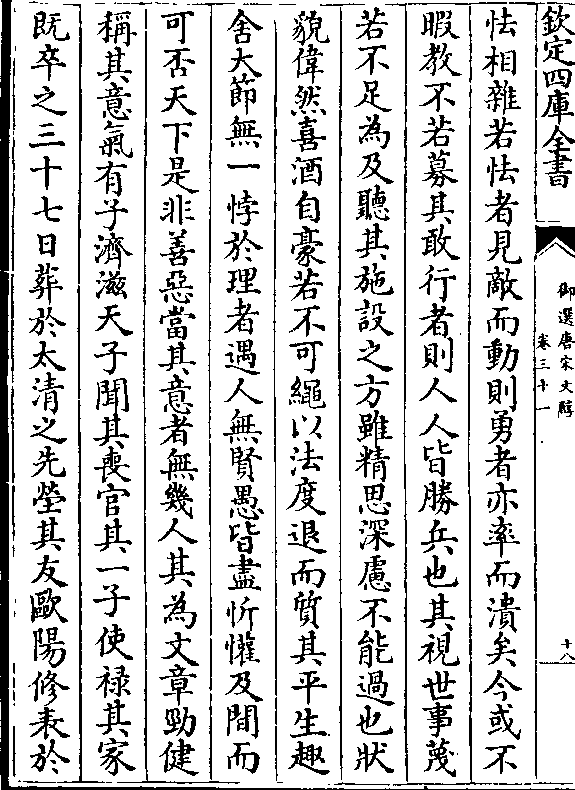 欽定四庫全書
御選唐宋文醇
卷三十一
十八
怯相雜若怯者見敵而動則勇者亦率而潰矣今或不
暇教不若募其敢行者則人人皆勝兵也其視世事蔑
若不足為及聽其施設之方雖精思深慮不能過也狀
貌偉然喜酒自豪若不可繩以法度退而質其平生趣
舍大節無一悖於理者遇人無賢愚皆盡忻懽及間而
可否天下是非善惡當其意者無幾人其為文章勁健
稱其意氣有子濟滋天子聞其喪官其一子使禄其家
既卒之三十七日葬於太清之先塋其友歐陽修表於